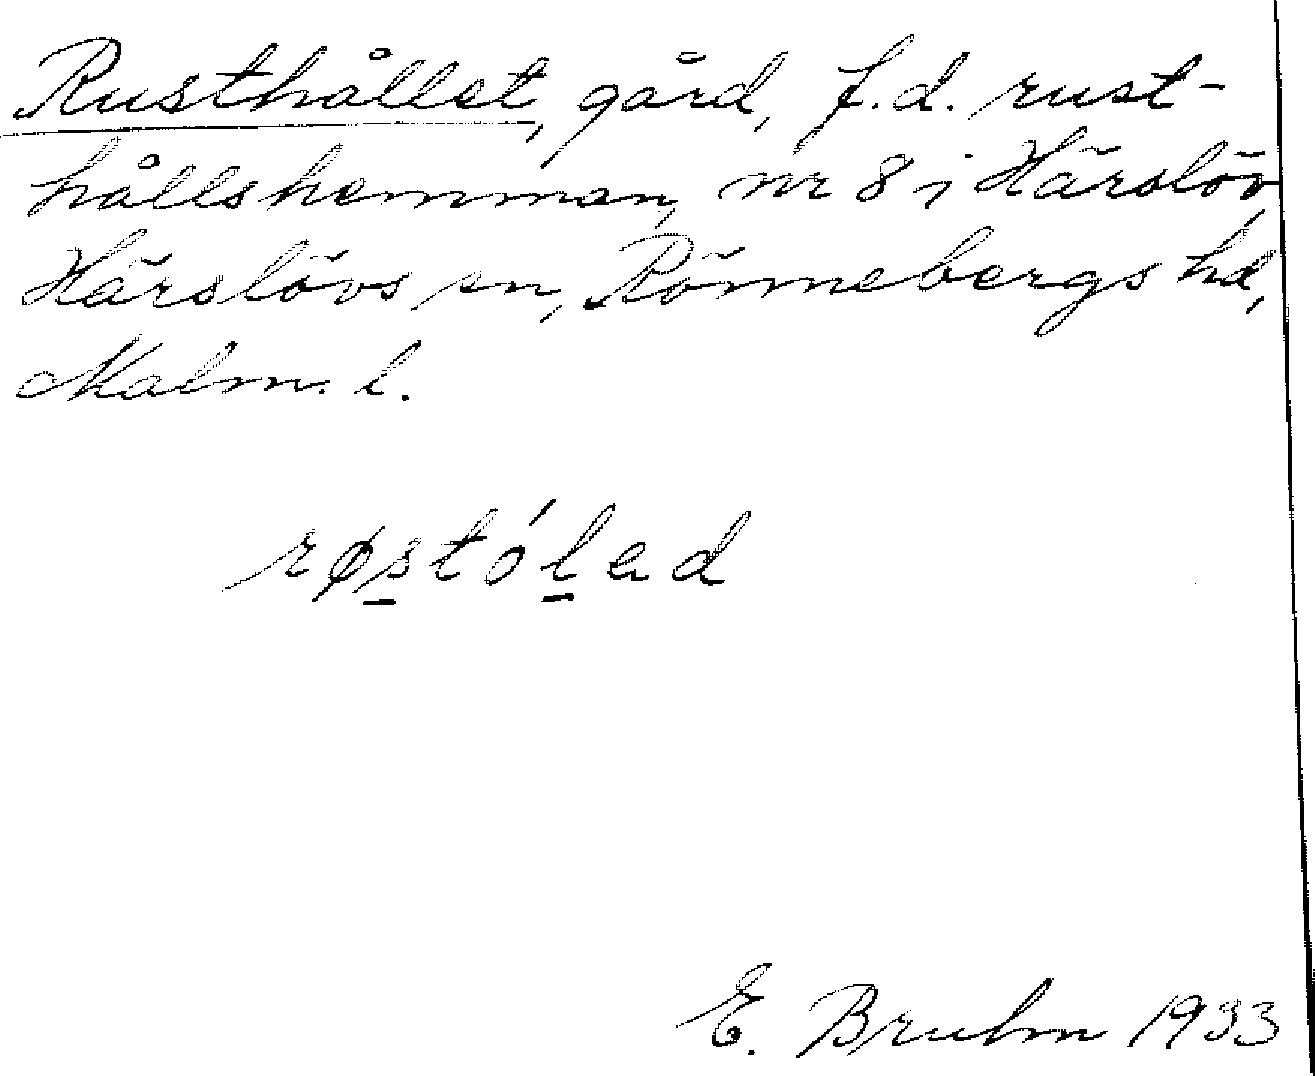 Rusthållet, gård, f.d. rust-
hållshemman, nr 8 i Härslöv,
Härslövs sn, Rönnebergs hd,
Malm. l.
røstólad
E. Bruhn 1933